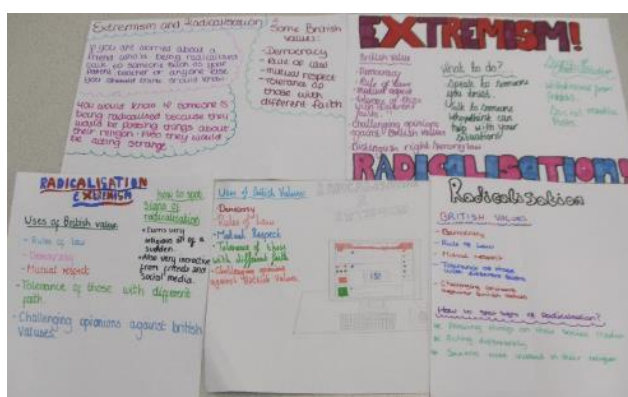 Extremism and Radicalisation
If you are worried about a
friend who is being radicalised
talk to someone such as your
Parent, teacher or anyone else
you should think should know
You would know if someone is
being radicalised because they
would be posting things about
their religion. Also they would
be acting strange.
Some British
values:
- Democracy
- Rule of law
- mutual respect
- tolerance of
those with
different faith
EXTREMISM!
British value
- Democracy
- Rule of law
- Mutual respect
- tolerance of those
with different
faiths
- Challenging opinions
against British values
- Distinguish right from wrong law
What to do?
Speak to someone
you trust.
Talk to someone
who can
help with your
situation
Withdrawal from
RADICALISATION!
RADICALISATION
EXTREMISM
Uses of British value
- Rules of law
- Democracy
- Mutual respect
- Tolerance of those with different
faith.
- Challenging opinions against british
values.
how to spot
signs of
radicalisation
• Turns very
religious all of a
sudden.
• Also very
from friends and
social media.
Uses of British Values:
- Democracy
- Rules of Law
- Mutual Respect
- Tolerance of those
with different faith
- Challenging opinions
against British Values
Radicalisation
BRITISH VALUES
- Democracy
- Rule of Law
- Mutual respect
- Tolerance of those
with different faiths
- Challenging opinions
against British values
How to spot signs of Radicalisation?
Posting things on their social media
Acting differently
more in their religion